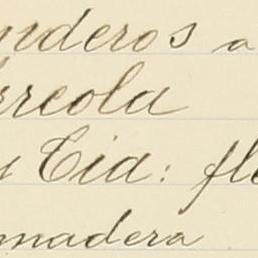 nderos a
rreola
y Cia: fle
madera